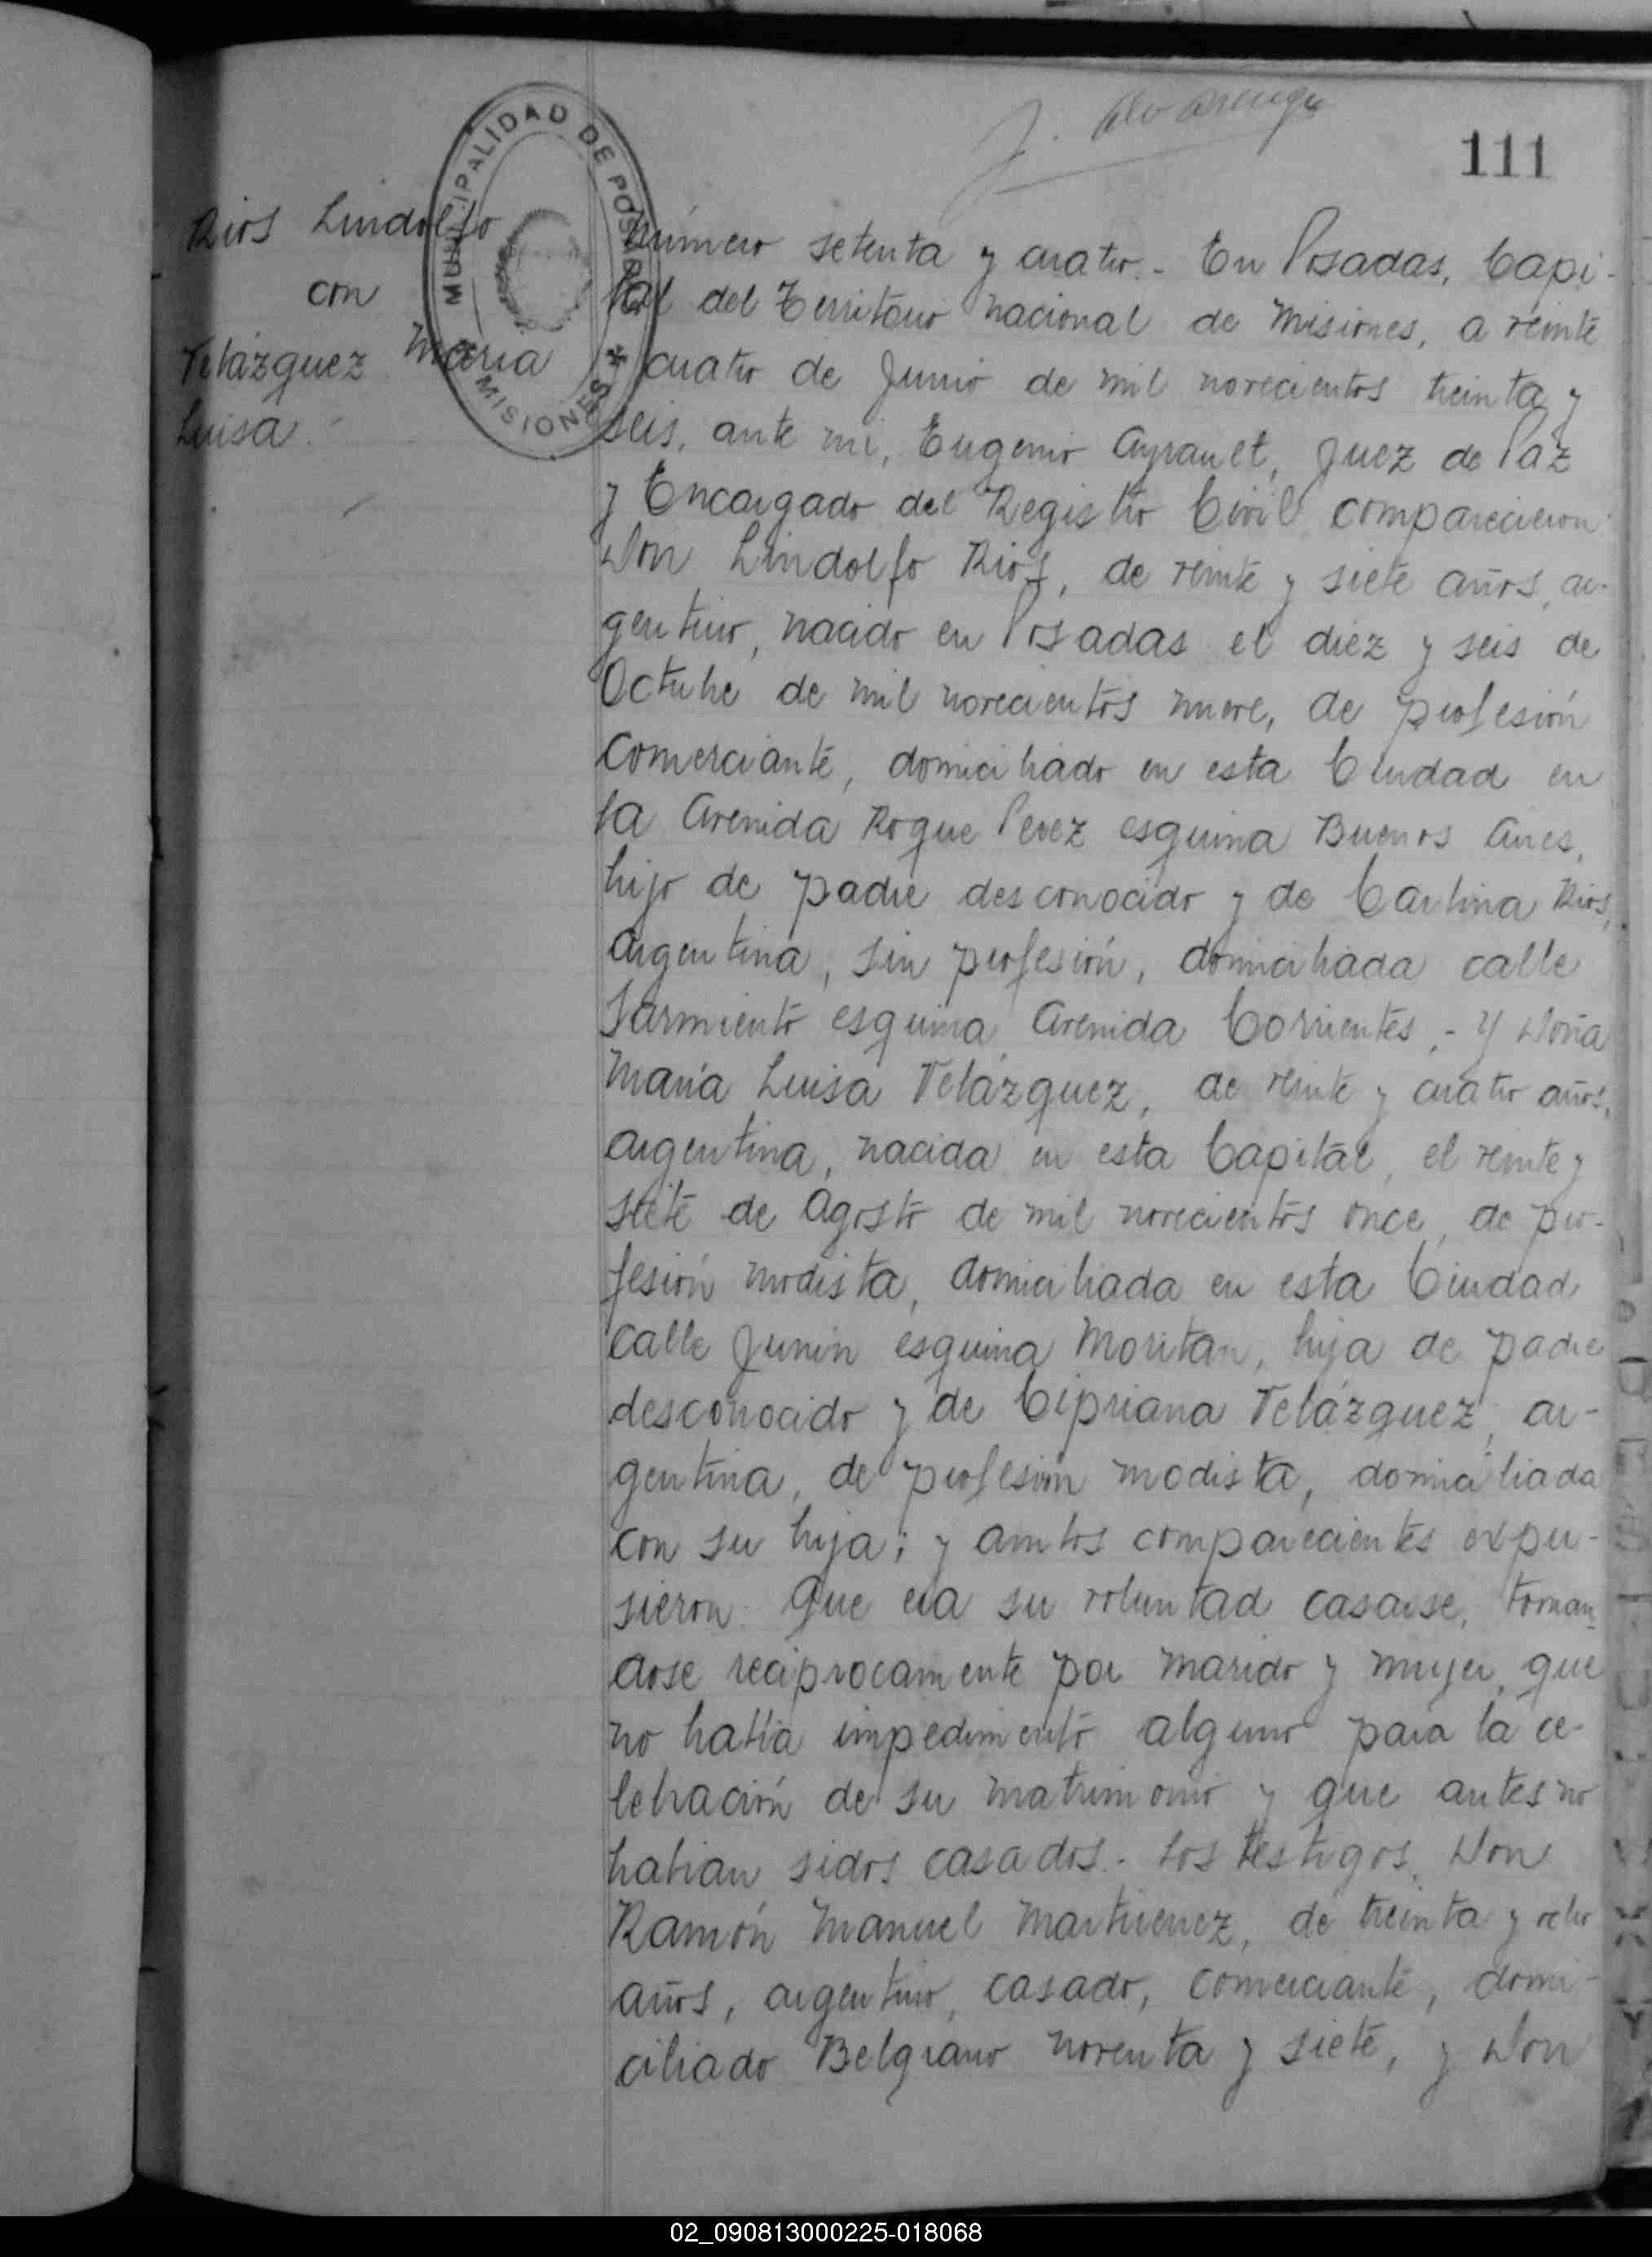 111
MUNICIPALIDAD DE POSADAS
* MISIONES *
Rios Lindolfo
con
Velázquez Maria
Luisa.
Número setenta y cuatro.- En Posadas, Capi-
tal del Territorio nacional de Misiones, a veinte
y cuatro de Junio de mil novecientos treinta y
seis, ante mi, Eugenio Ayrault, Juez de Paz
y Encargado del Registro Civil comparecieron
Don Lindolfo Rios, de veinte y siete años, ar-
gentino, nacido en Posadas el diez y seis de
Octubre de mil novecientos nueve, de profesión
comerciante, domiciliado en esta Ciudad en
la Avenida Roque Perez esquina Buenos Aires,
hijo de padre desconocido y de Carlina Rios,
argentina, sin profesión, domiciliada calle
Sarmiento esquina Avenida Corrientes.- Y Doña
María Luisa Velázquez, de veinte y cuatro años,
argentina, nacida en esta Capital, el veinte y
siete de Agosto de mil novecientos once, de pro-
fesión modista, domiciliada en esta Ciudad
calle Junin esquina Moritan, hija de padre
desconocido y de Cipriana Velázquez, ar-
gentina, de profesión modista, domiciliada
con su hija; y ambos comparecientes expu-
sieron: Que era su voluntad casarse, toman-
dose reciprocamente por marido y mujer, que
no había impedimento alguno para la ce-
lebración de su matrimonio y que antes no
habian sidos casados.- Los testigos, Don
Ramón Manuel Martinenez, de treinta y ocho
años, argentino, casado, comerciante, domi-
ciliado Belgrano noventa y siete, y Don
02_090813000225-018068